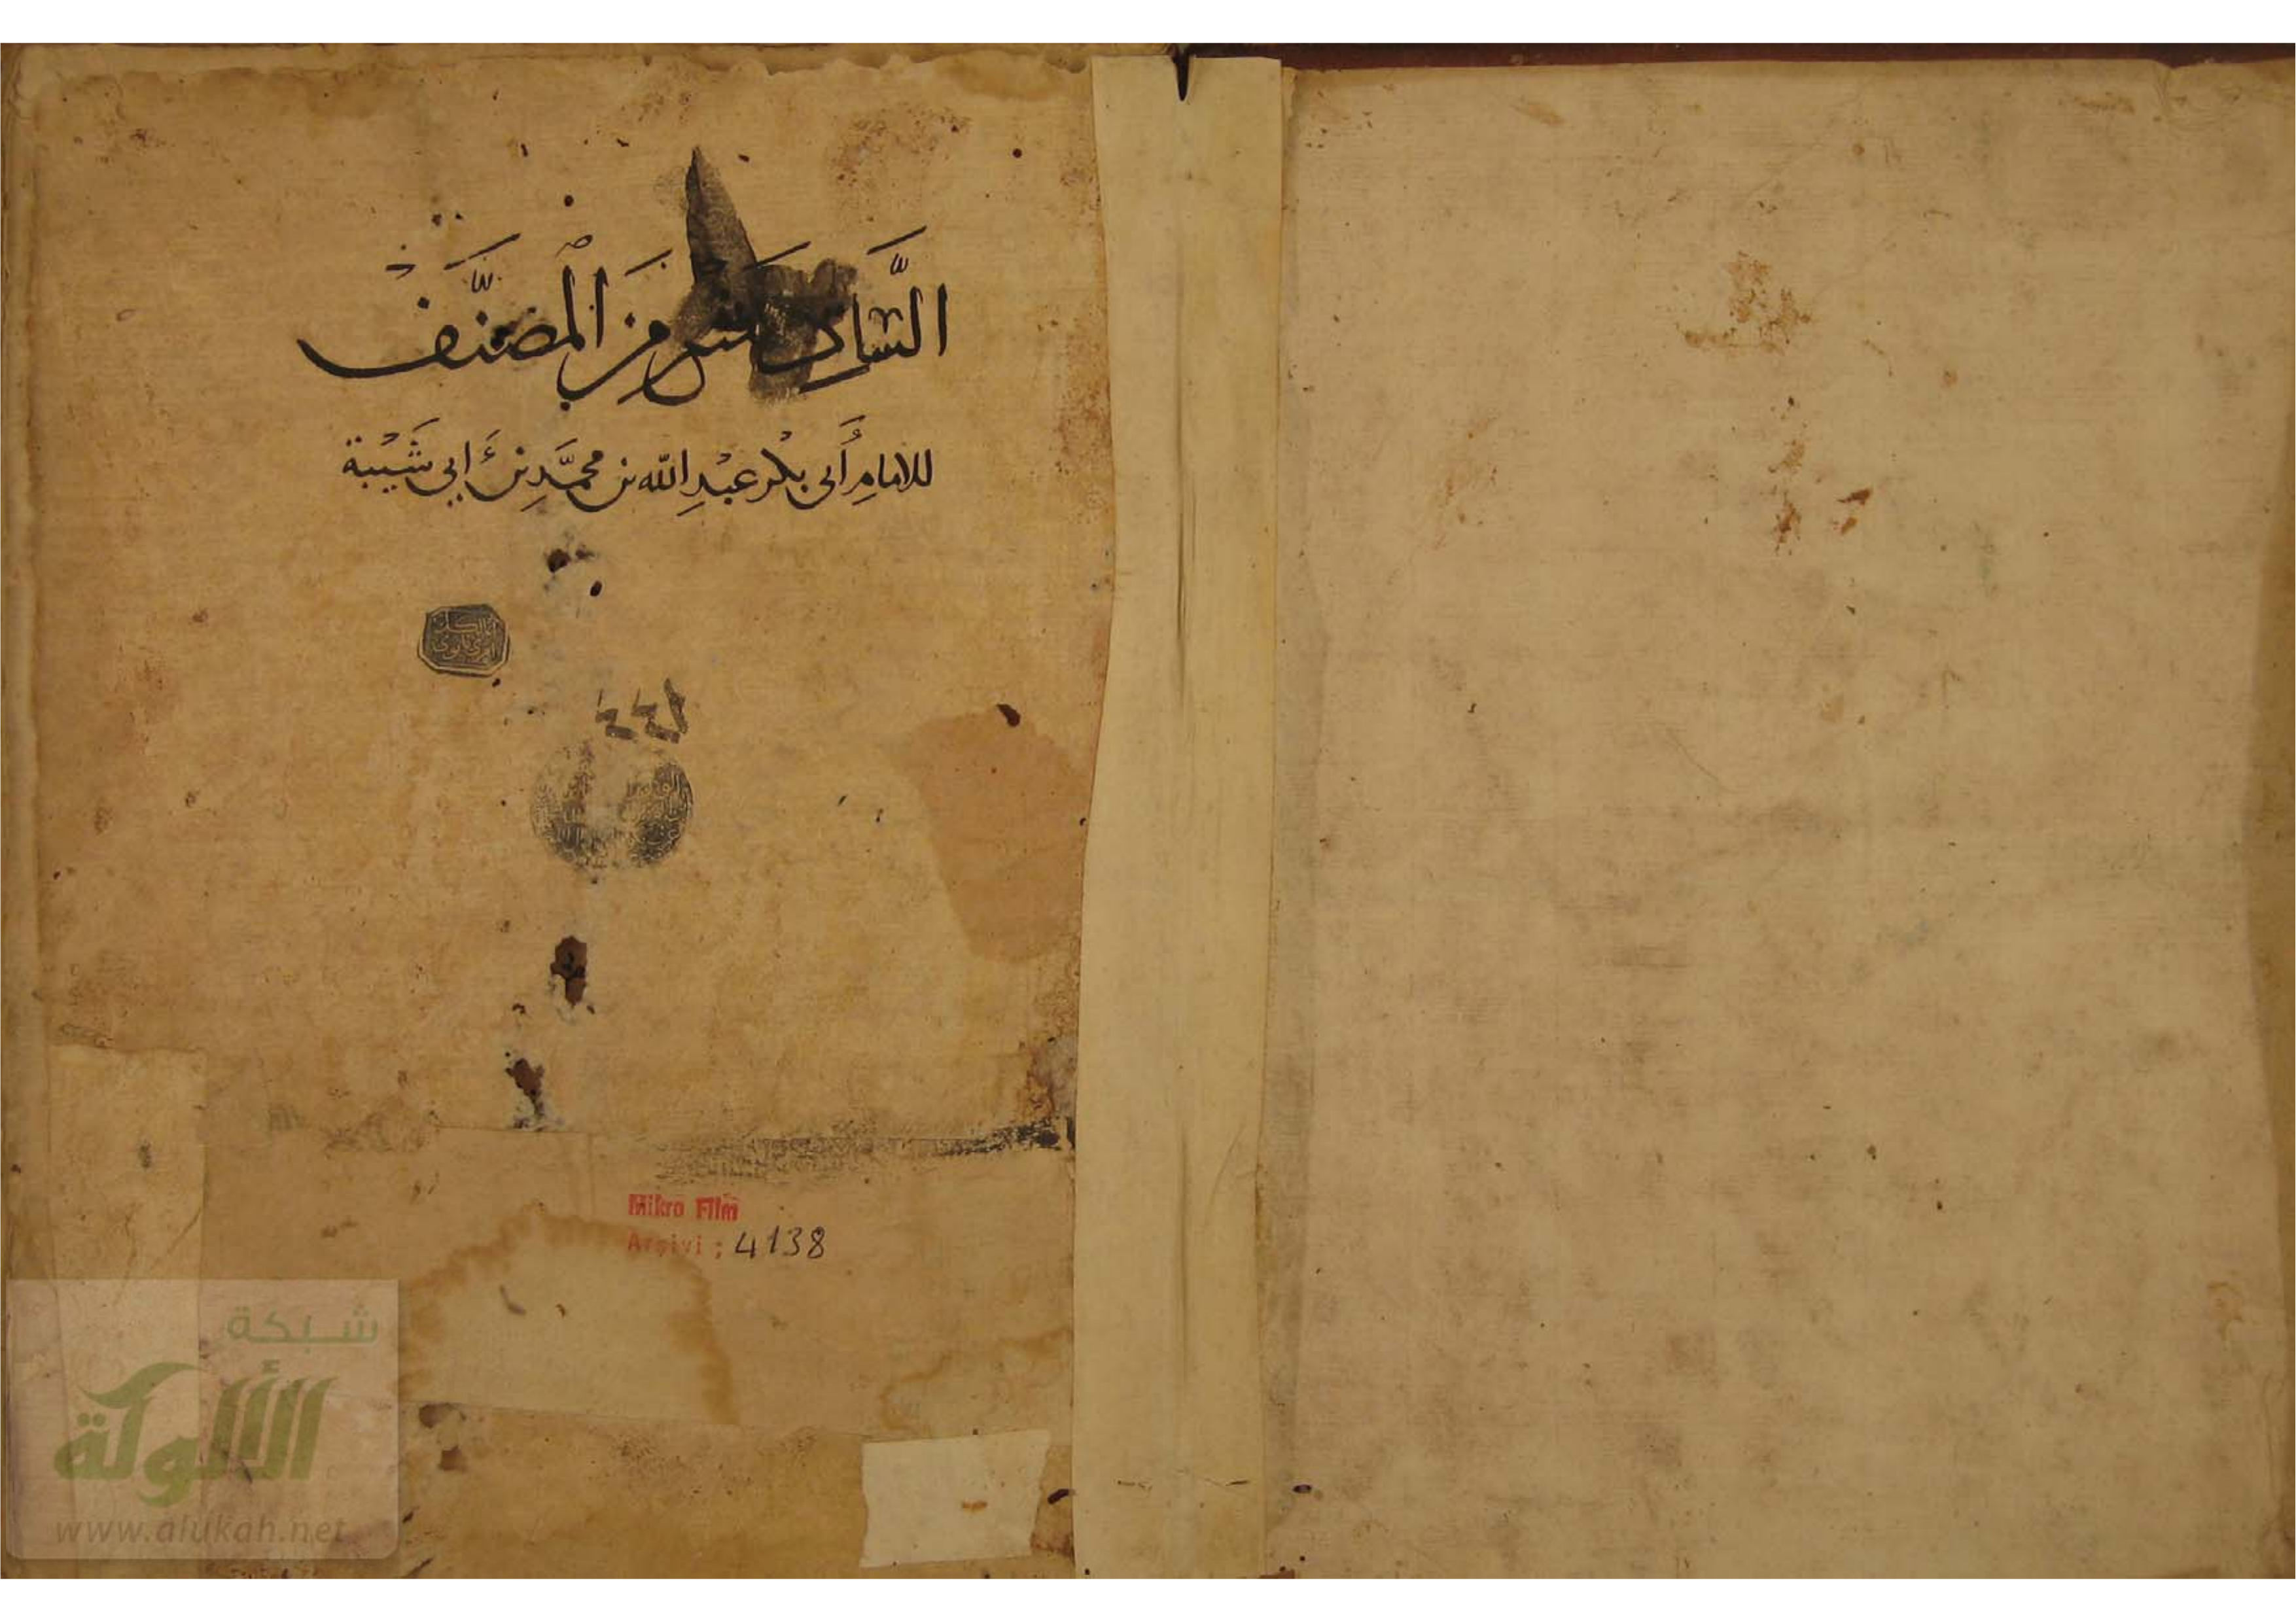 السَّادِس عشر مِنَ المُصَنَّف
للامامِ أَبى بكْر عبْدِ الله بن محمَّدِ بن أَبي شَيْبَة
Mikro Film
Arşivi : 4138
شبكة
الألوكة
www.alukah.net